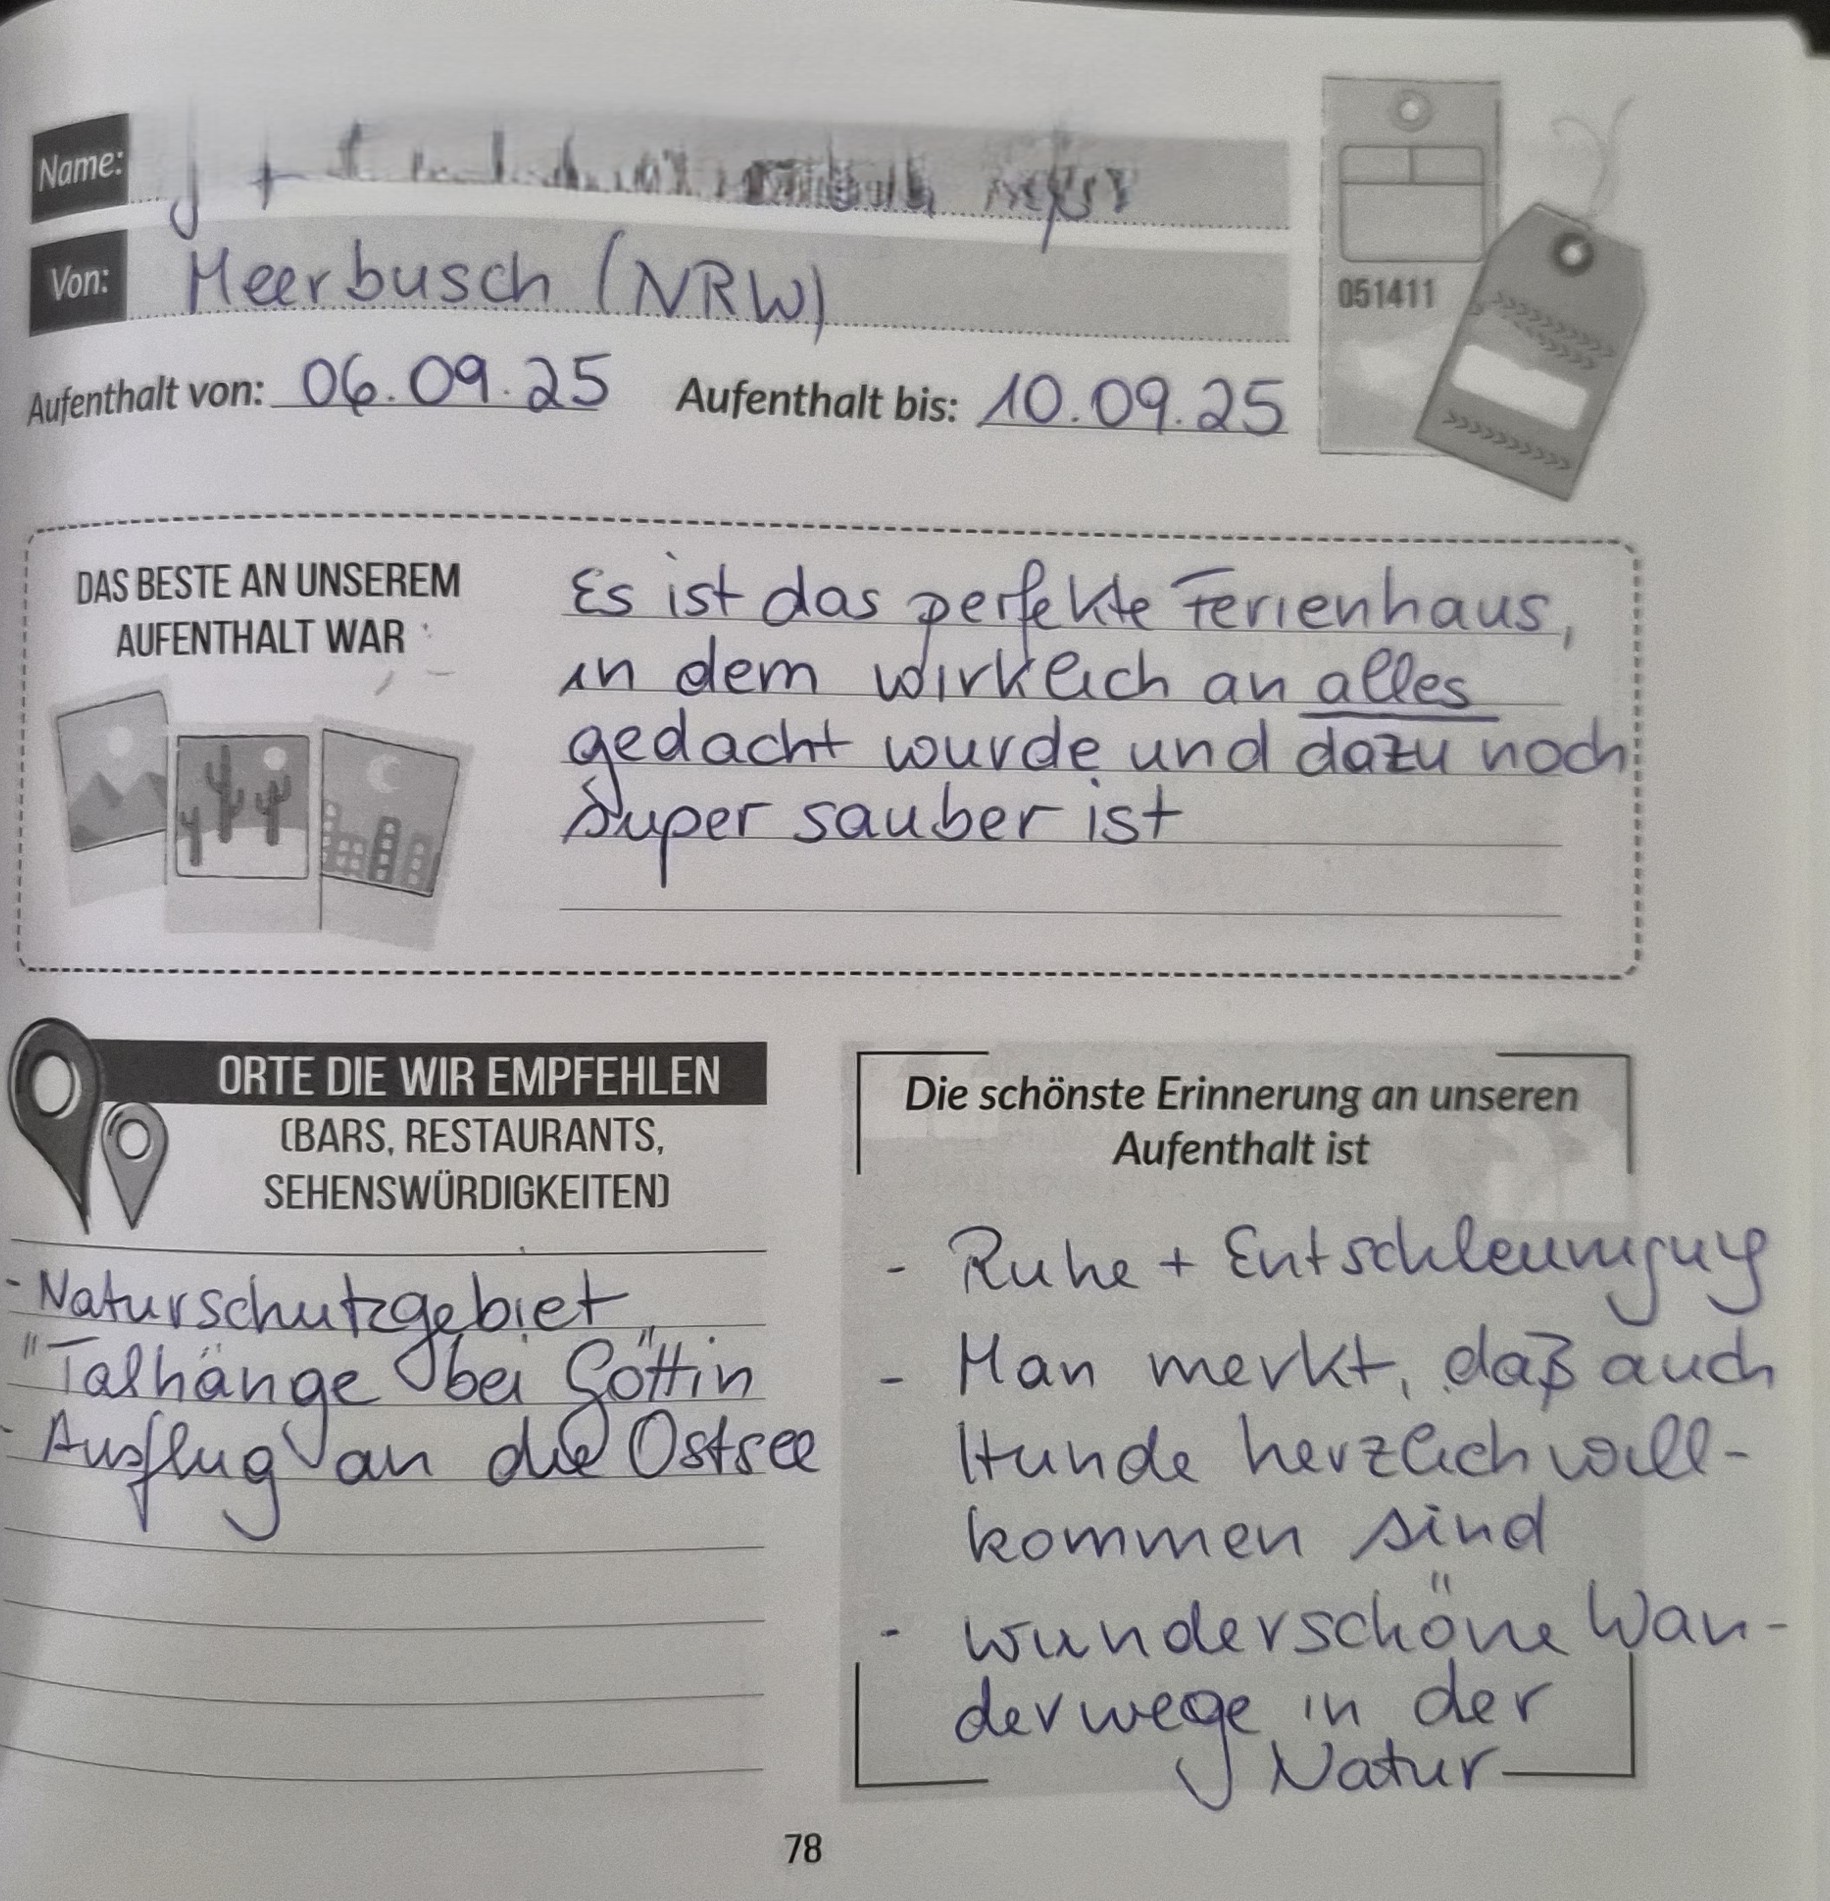 Name:
Von: Meerbusch (NRW)
051411
Aufenthalt von: 06.09.25 Aufenthalt bis: 10.09.25
DAS BESTE AN UNSEREM
AUFENTHALT WAR
Es ist das perfekte Ferienhaus,
in dem wirklich an alles
gedacht wurde und dazu noch
super sauber ist
ORTE DIE WIR EMPFEHLEN
(BARS, RESTAURANTS,
SEHENSWÜRDIGKEITEN)
- Naturschutzgebiet
"Talhänge bei Göttin"
- Ausflug an die Ostsee
Die schönste Erinnerung an unseren
Aufenthalt ist
- Ruhe + Entschleunigung
- Man merkt, daß auch
Hunde herzlich will-
kommen sind
- wunderschöne Wan-
derwege in der
Natur
78